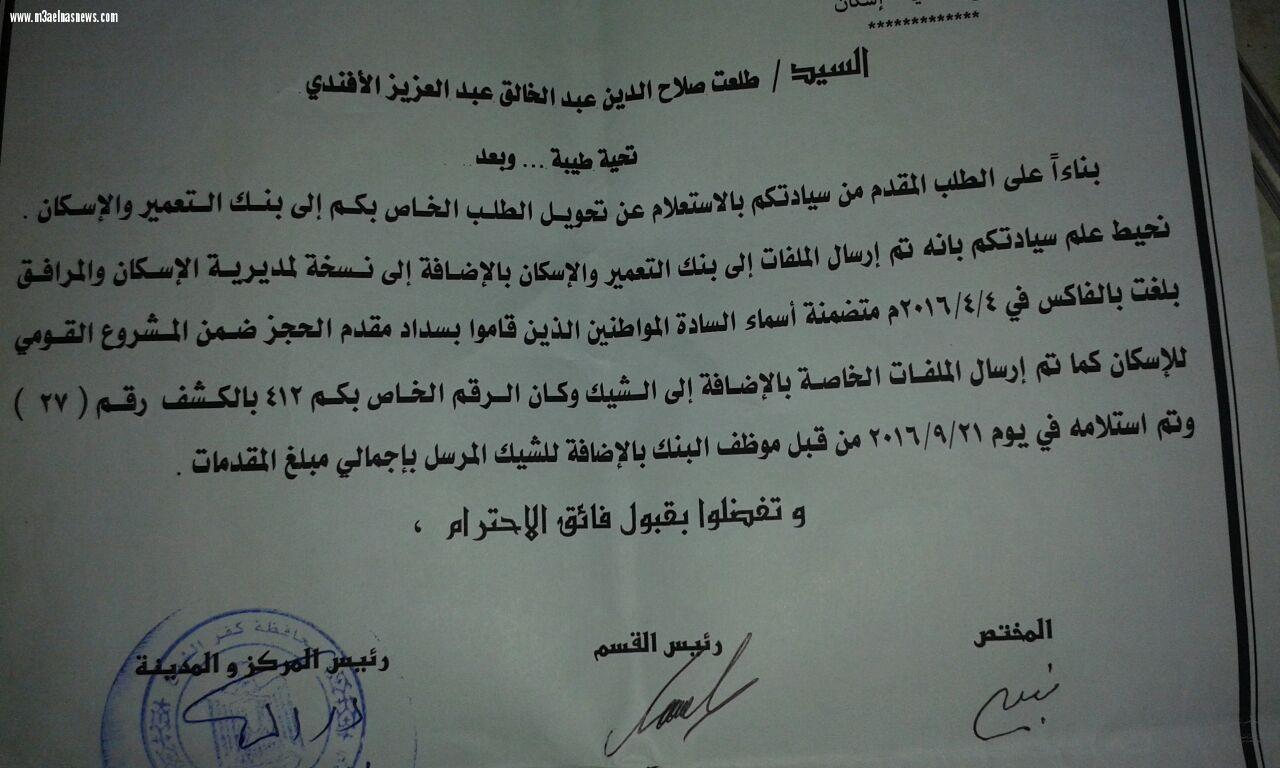 www.m3aelnasnews.com
إسكان
*************
السيد / طلعت صلاح الدين عبد الخالق عبد العزيز الأفندي
تحية طيبة ... وبعد
بناءاً على الطلب المقدم من سيادتكم بالاستعلام عن تحويل الطلب الخاص بكم إلى بنك التعمير والإسكان .
نحيط علم سيادتكم بانه تم إرسال الملفات إلى بنك التعمير والإسكان بالإضافة إلى نسخة لمديرية الإسكان والمرافق
بلغت بالفاكس في ٢٠١٦/٤/٤م متضمنة أسماء السادة المواطنين الذين قاموا بسداد مقدم الحجز ضمن المشروع القومي
للإسكان كما تم إرسال الملفات الخاصة بالإضافة إلى الشيك وكان الرقم الخاص بكم ٤١٢ بالكشف رقم ( ٢٧ )
وتم استلامه في يوم ٢٠١٦/٩/٢١ من قبل موظف البنك بالإضافة للشيك المرسل بإجمالي مبلغ المقدمات .
و تفضلوا بقبول فائق الاحترام ،
المختص
رئيس القسم
رئيس المركز و المدينة
محافظة كفر